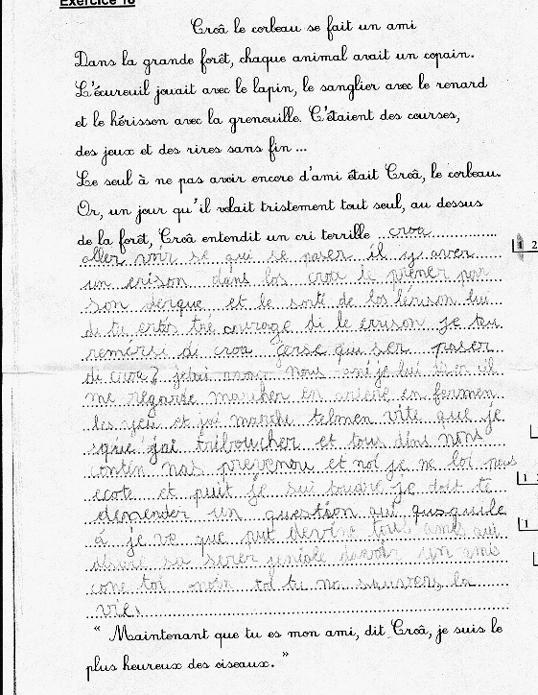 Exercice 18
Croâ le corbeau se fait un ami
Dans la grande forêt, chaque animal avait un copain.
L'écureuil jouait avec le lapin, le sanglier avec le renard
et le hérisson avec la grenouille. C'étaient des courses,
des jeux et des rires sans fin ...
Le seul à ne pas avoir encore d'ami était Croâ, le corbeau.
Or, un jour qu'il volait tristement tout seul, au dessus
de la forêt, Croâ entendit un cri terrille croa
aller voir se qui se paser il y aver
un erison dans los croa le prener par
son derque et le sorte de los lérison lui
di tu ertes tre courage di le erison je teu
remersi di croa qui ser paser
di croa ? nous je lui
me regarde marcher en ariere en fermen
les yeu et jai marche telmen vite que je
que jai triboucher et tous dans nous
conten nas prevenou et noi je ne loi pous
ecote et puit je sui je doit te
demender un question qui qusquile
á je ve que tu devine tous
sa serer geniale davoir un amis
come toi tu ma sauver la
vie.
" Maintenant que tu es mon ami, dit Croâ, je suis le
plus heureux des oiseaux. "
1 2
1
1